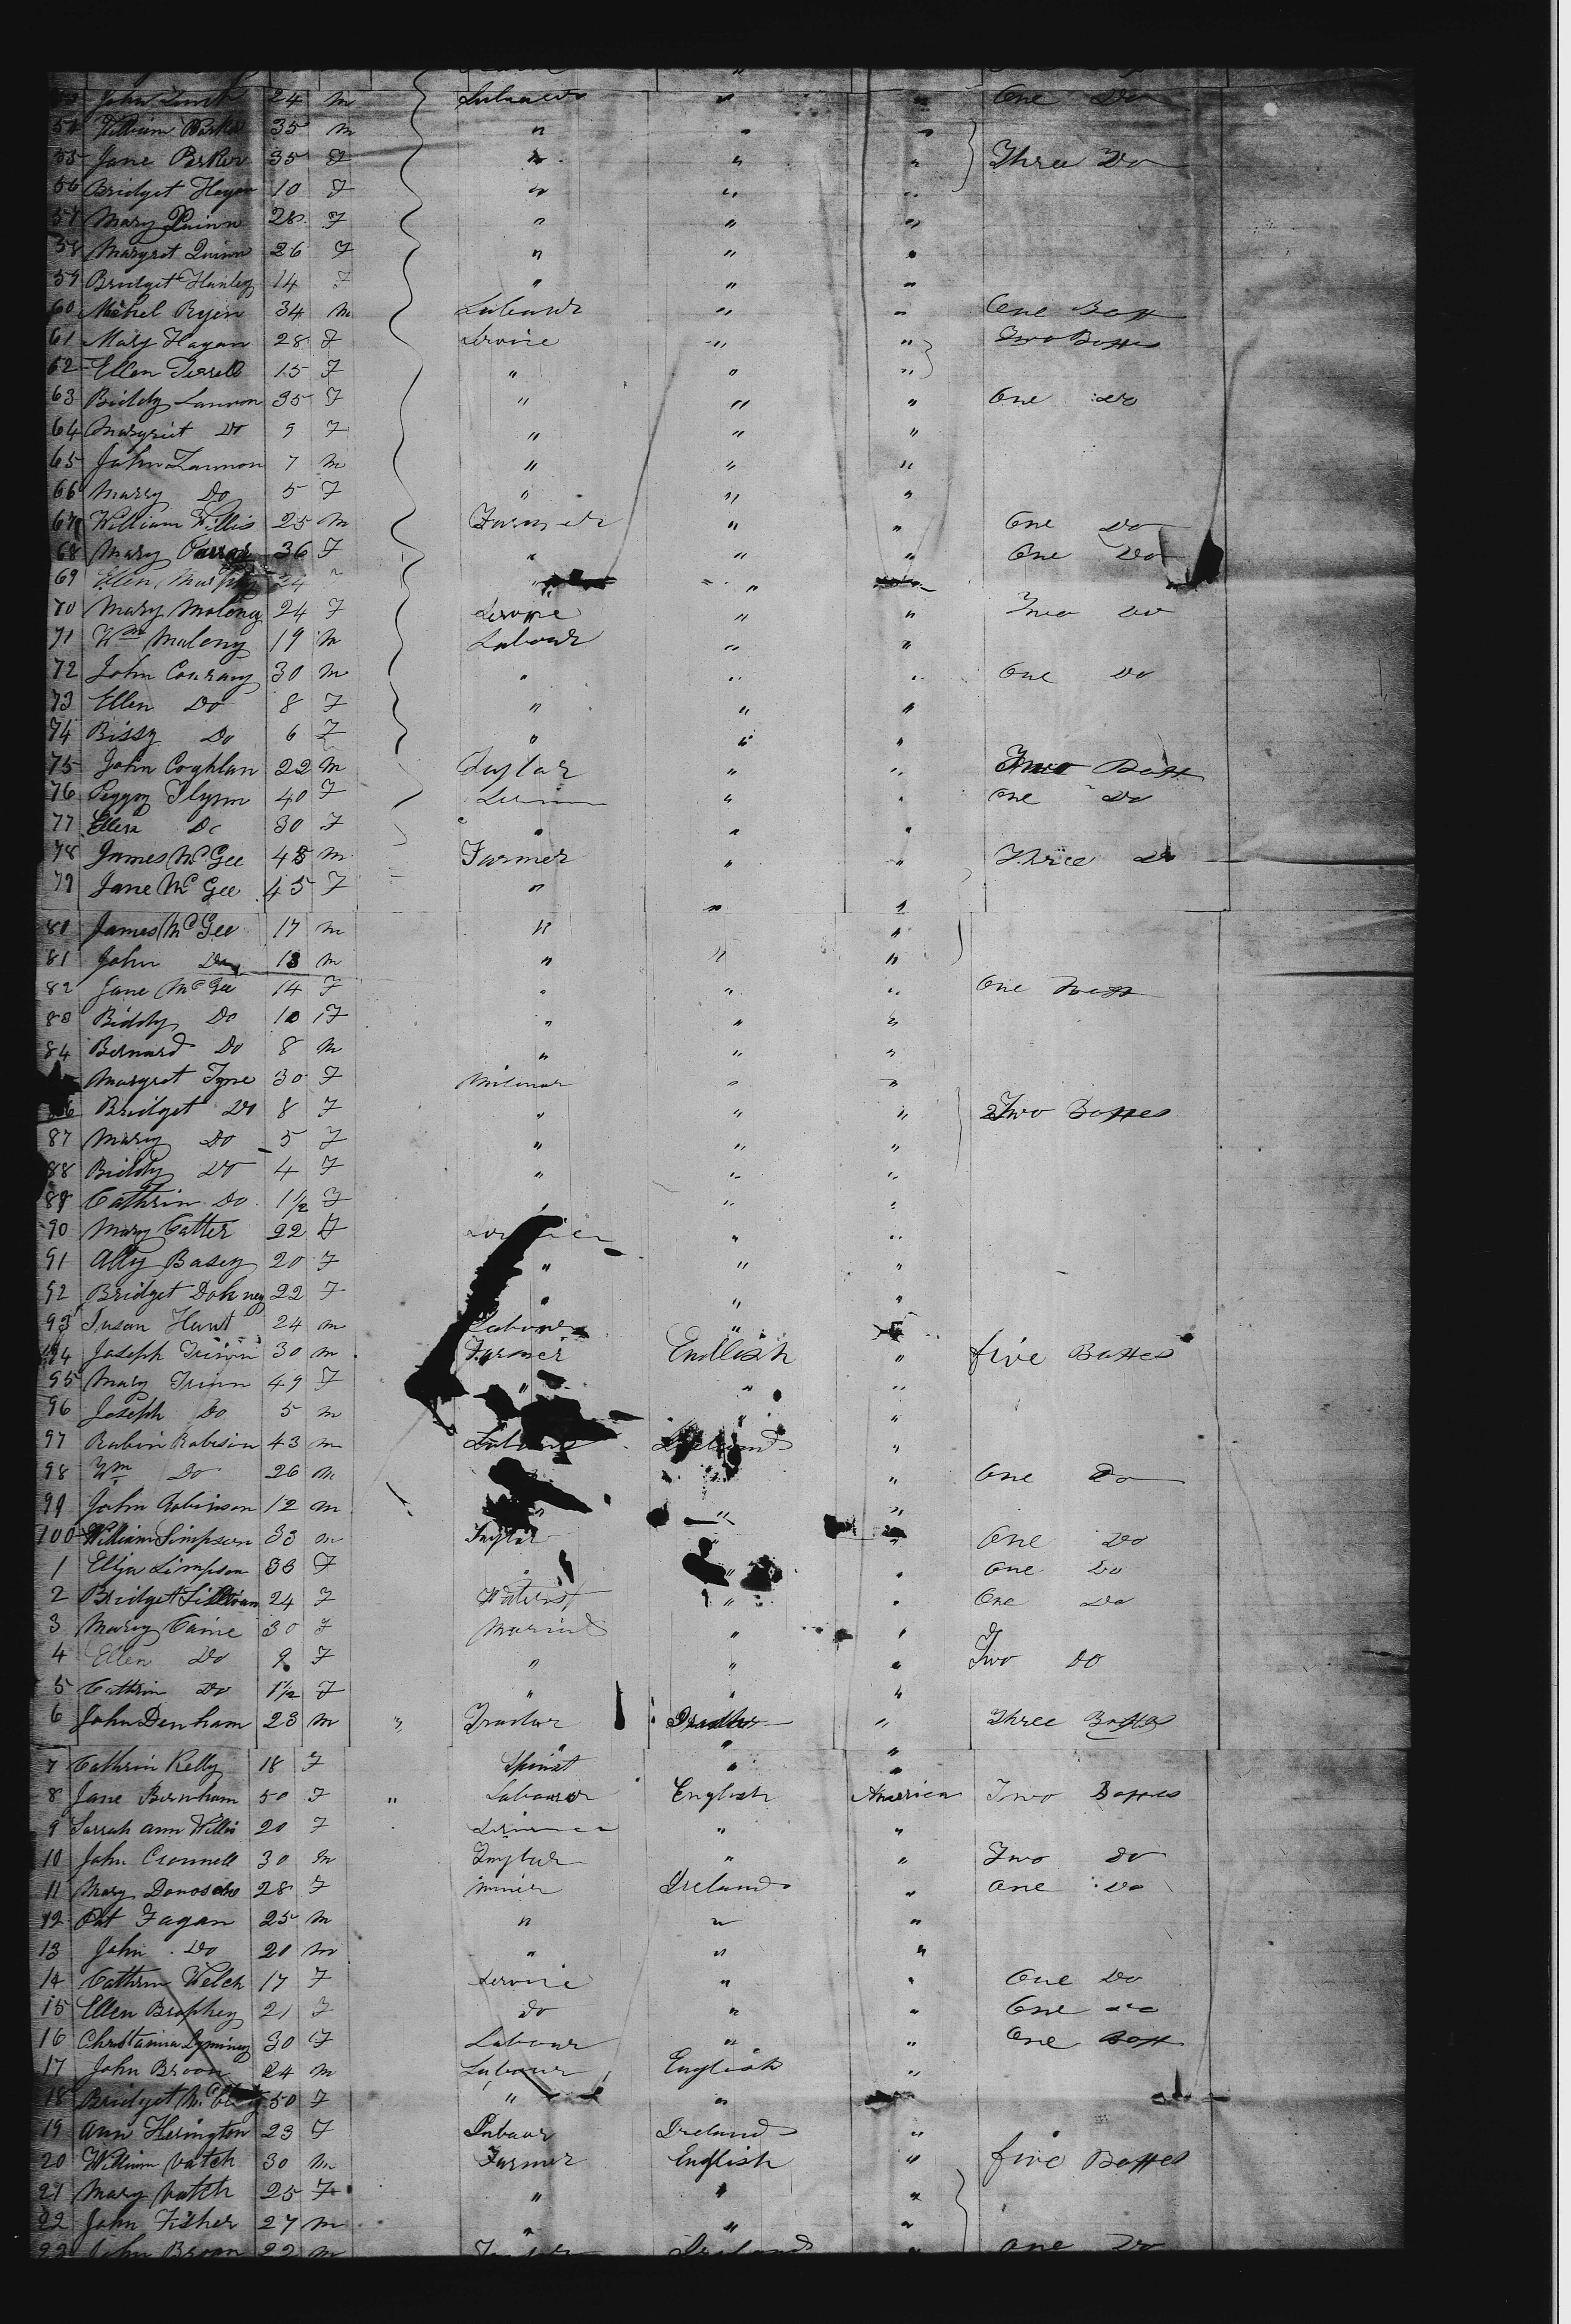 John 24 m Labower " " One Do
54 William Parker 35 m " " "
55 Jane Parker 35 F " " " Three Do
56 Bridget Hogan 10 F " " "
57 Mary Quinn 28 F " " "
58 Margret Quinn 26 F " " "
59 Bridget Hanley 14 F " " "
60 Michel Ryen 34 m Labour " " One Box
61 Mary Hagan 28 F " " Two Boxes
62 Ellen 15 F " " "
63 Biddy Lannon 35 F " " " One Do
64 Margriet Do 9 F " " "
65 John Lannon 7 m " " "
66 Marry Do 5 F " " "
67 William Willis 25 m Farmer " " One Do
68 Mary 36 F " " " One Do
69 Ellen Murphy 24 " "
70 Mary Molony 24 F " " Two Do
71 Wm Malony 19 m Labour " "
72 John Conray 30 m " " " One Do
73 Ellen Do 8 F " " "
74 Bissy Do 6 F " " "
75 John Coghlan 22 m Taylar " " Two Box
76 Peggy Flynn 40 F " " One Do
77 Ellen Do 30 F " " "
78 James McGee 45 m Farmer " " Three Do
79 Jane McGee 45 F " " "
80 James McGee 17 m " "
81 John Do 13 m " " "
82 Jane McGee 14 F " " " One Box
83 Biddy Do 10 F " " "
84 Bernard Do 8 m " " "
Margret Tyne 30 F " "
86 Bridget Do 8 F " " " Two Boxes
87 Mary Do 5 F " " "
88 Biddy Do 4 F " " "
89 Cathrin Do 1 1/2 F " " "
90 Mary Catter 22 F " "
91 Ally Basey 20 F " " "
92 Bridget Dohney 22 F " " "
93 Susan Hunt 24 m Labour "
94 Joseph 30 m Farmer Endlish " five Boxes
95 Mary 49 F " " "
96 Joseph Do 5 m " "
97 Rabin Robison 43 m Labour Ireland "
98 Wm Do 26 m " One Do
99 John Robinson 12 m " " "
100 William Simpson 33 m Taylar " One Do
1 Eliza Simpson 33 F " " One Do
2 Bridget Sillivan 24 F " " One Do
3 Mary Caine 30 F Marind " "
4 Ellen Do 9 F " " " Two Do
5 Cathrin Do 1 1/2 F " " "
6 John Denham 23 m " " Three Boxes
7 Cathrin Kelly 18 F Spinst " "
8 Jane Burnham 50 F " Labourer English America Two Boxes
9 Sarrah ann Willis 20 F " "
10 John Cronnell 30 m Taylur " " Two Do
11 Mary 28 F Ireland " One Do
12 Pat Fagan 25 m " " "
13 John Do 20 m " " "
14 Cathrin Welch 17 F " " One Do
15 Ellen Brophey 21 F Do " " One Do
16 30 F Labour " " One Box
17 John Broon 24 m Labour English "
18 Bridget 50 F " "
19 Ann Herington 23 F Labour Ireland "
20 William Vatch 30 m Farmer English " five Boxes
21 Mary Vatch 25 F " " "
22 John Fisher 27 m " " "
23 John Broon 22 m Ireland " One Do